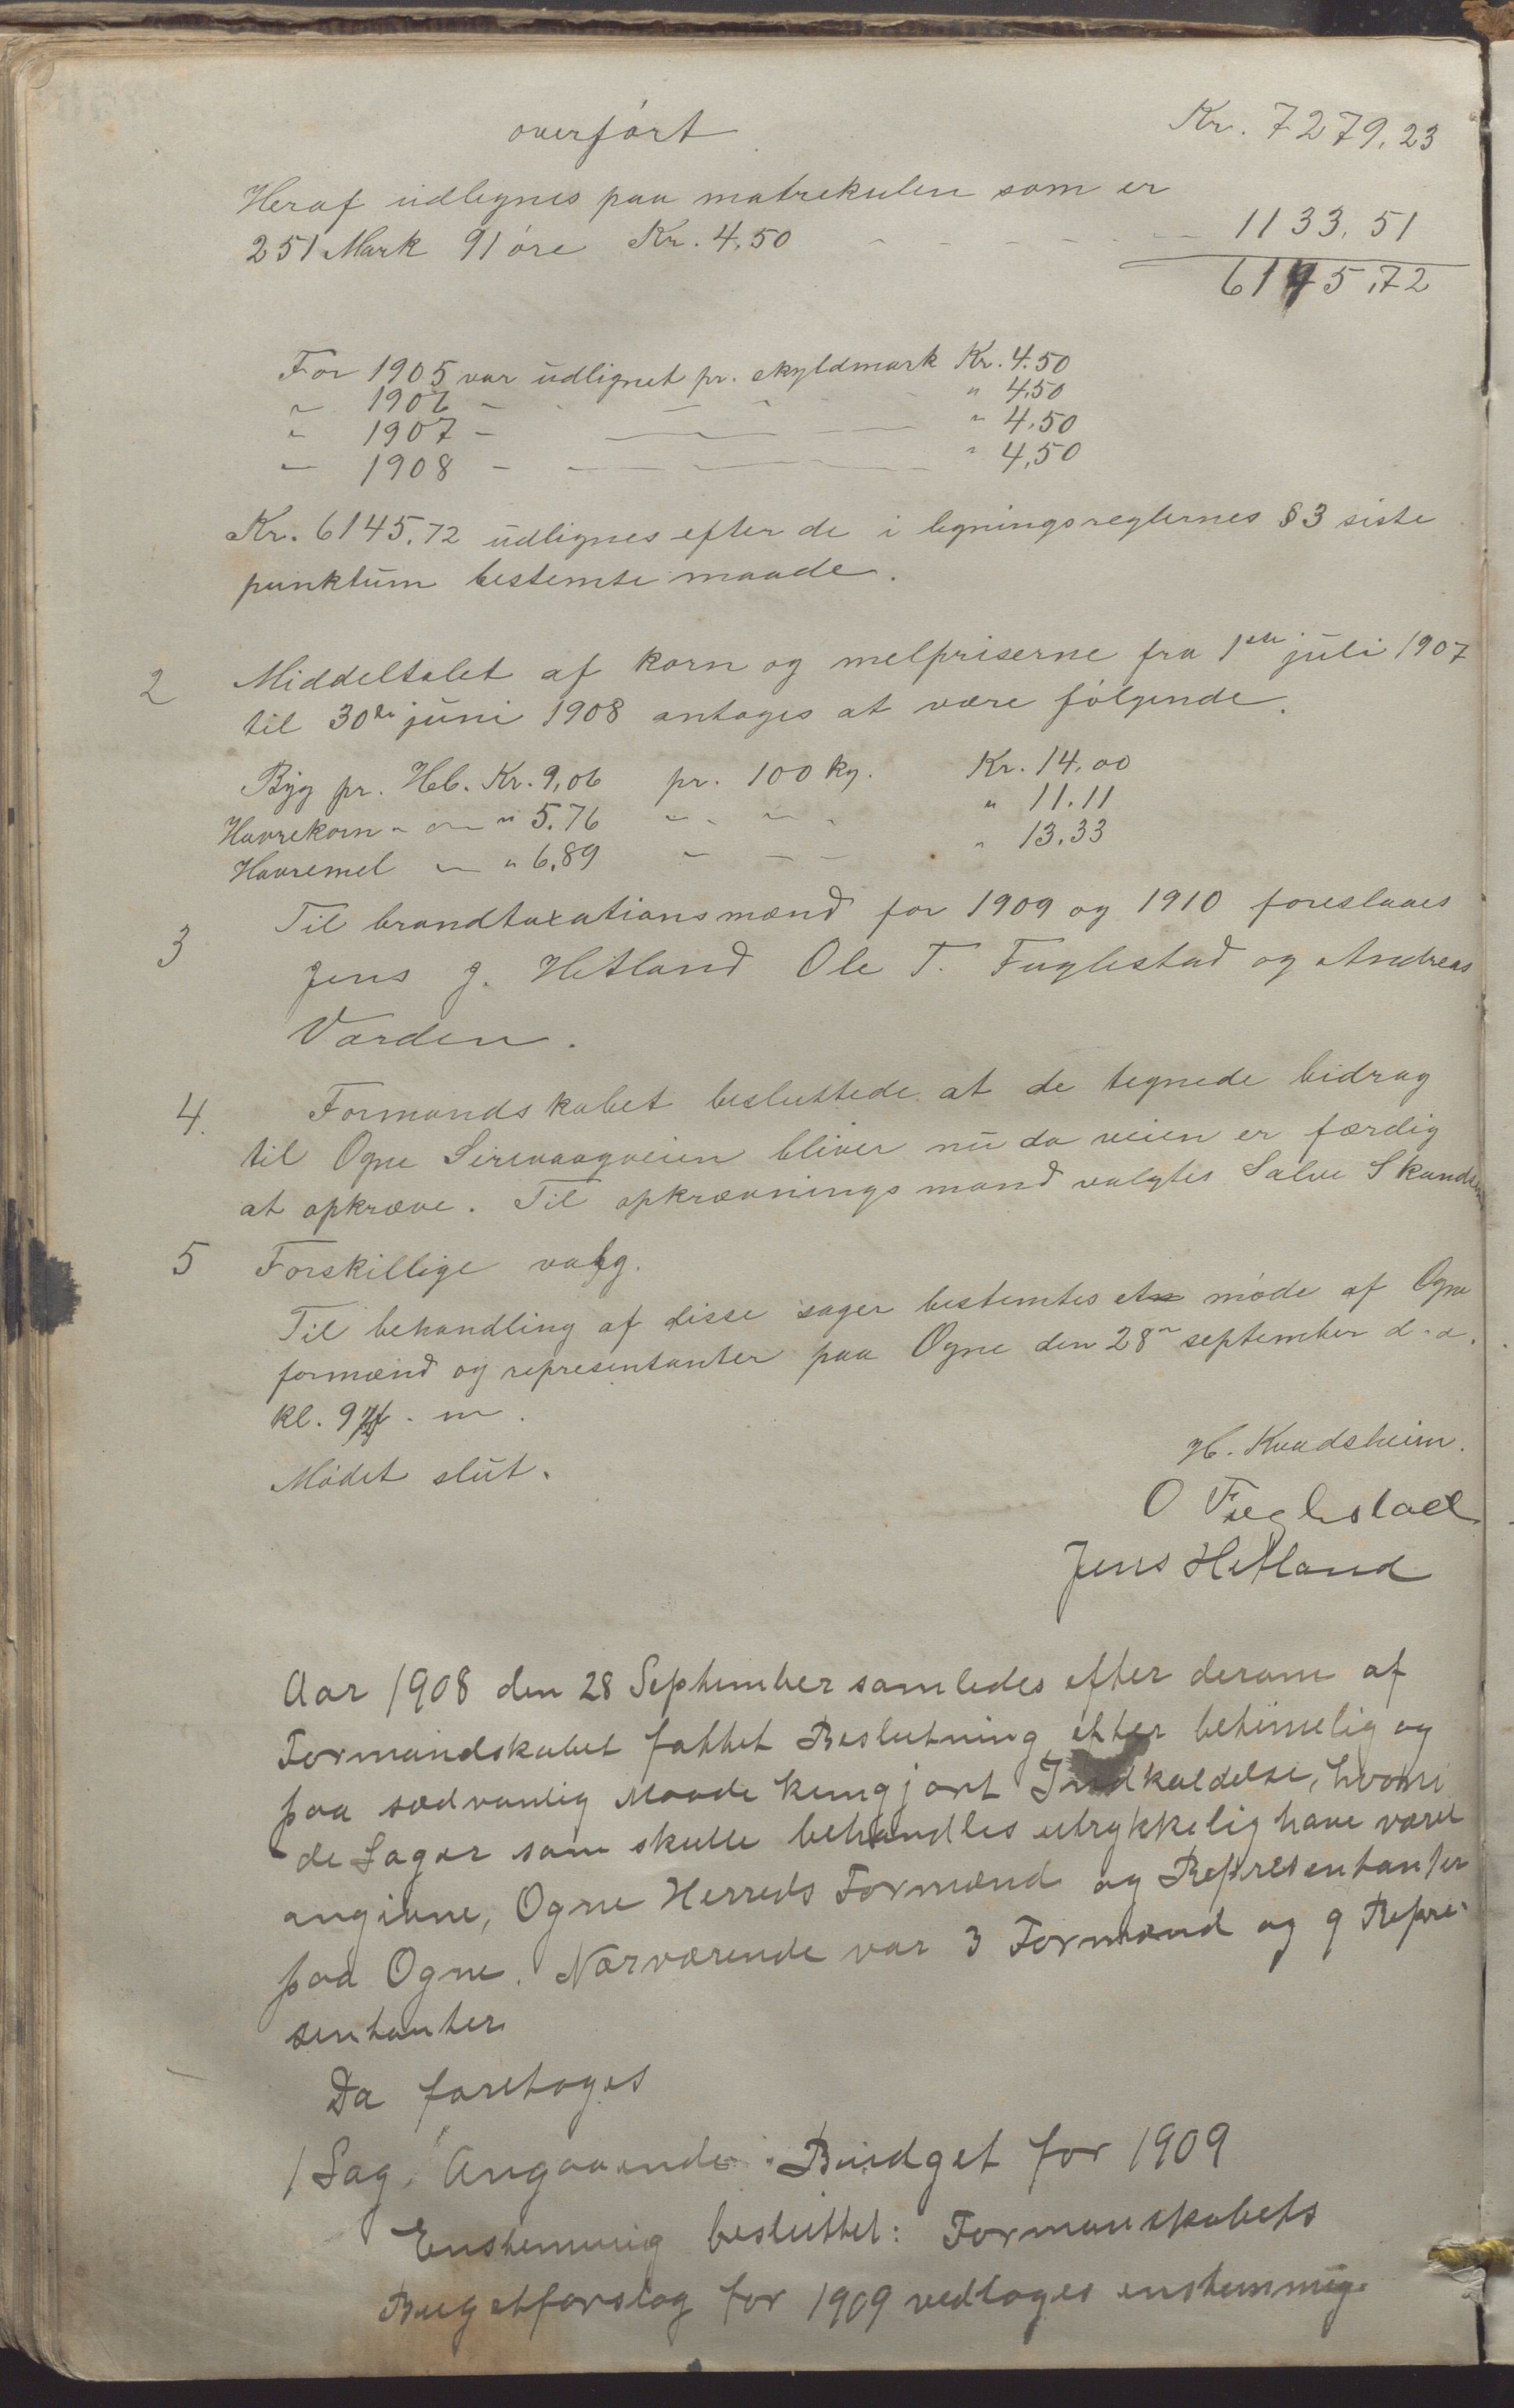 overført Kr. 7279,23
Heraf udlignes paa matrekulen som er
251 Mark 91 øre Kr. 4,50 - - - - - 1133,51
6145,72
For 1905 var udlignet pr. skyldmark Kr. 4.50
" 1906 - - - - " 4,50
" 1907 - - - - " 4,50
" 1908 - - - - " 4,50
Kr. 6145,72 udlignes efter de i ligningsreglernes § 3 siste
punktum bestemte maade.
2 Middeltalet af korn og melpriserne fra 1ste juli 1907
til 30te juni 1908 antages at være følgende.
Byg pr. Hl. Kr. 9,06 pr. 100 kg. Kr. 14,00
Havrekorn " " " 5.76 " " " " 11.11
Havremel " " 6,89 " " " " 13,33
3 Til brandtaxationsmænd for 1909 og 1910 foreslaaes
Jens J. Hetland Ole T. Fuglestad og Andreas
Varden.
4. Formandskabet besluttede at de tegnede bidrag
til Ogne Sirevaagveien bliver nu da veien er færdig
at opkræve. Til opkrævningsmand valgtes Salve
5 Forskillige valg.
Til behandling af disse sager bestemtes møde af Ogne
formænd og representanter paa Ogne den 28n september d. a.
kl. 9 1/2 f. m.
Mødet slut.
H. Kvadsheim.
O Fuglestad
Jens Hetland
Aar 1908 den 28 September samledes efter derom af
Formandskabet fattet Beslutning efter betimelig og
paa sædvanlig Maade kungjort Indkaldelse, hvori
de Sager som skulle behandles utrykkelig have været
angivne, Ogne Herreds Formænd og Representanter
paa Ogne. Nærværende var 3 Formænd og 9 Repre-
sentanter
Da foretoges
1 Sag, Angaaende Budget for 1909
Enstemmig besluttet: Formanskabets
Bugetforslag for 1909 vedtoges enstemmig.